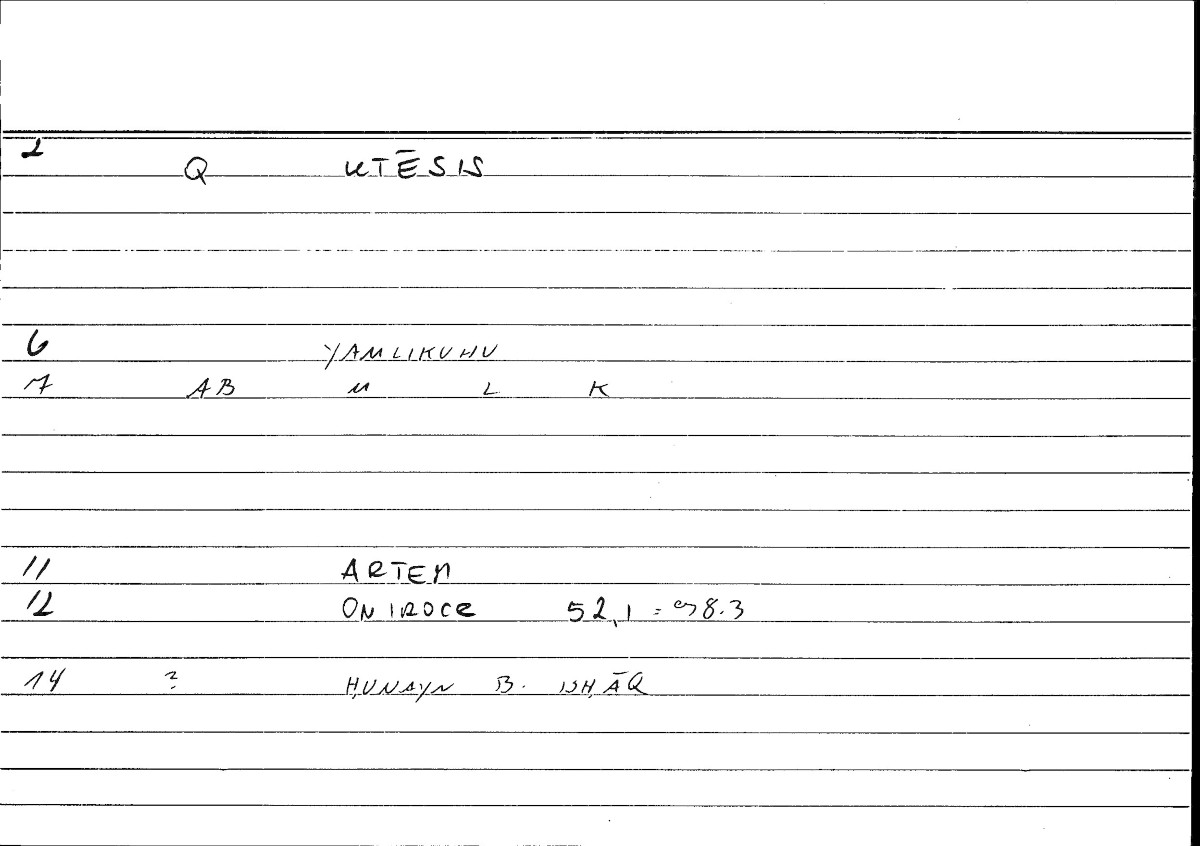 1 Q KTĒSIS
6 YAMLIKUHU
7 AB M L K
11 ARTEM
12 ONIROCR 52,1 = 98.3
14 ? ḤUNAYN B. ISḤĀQ